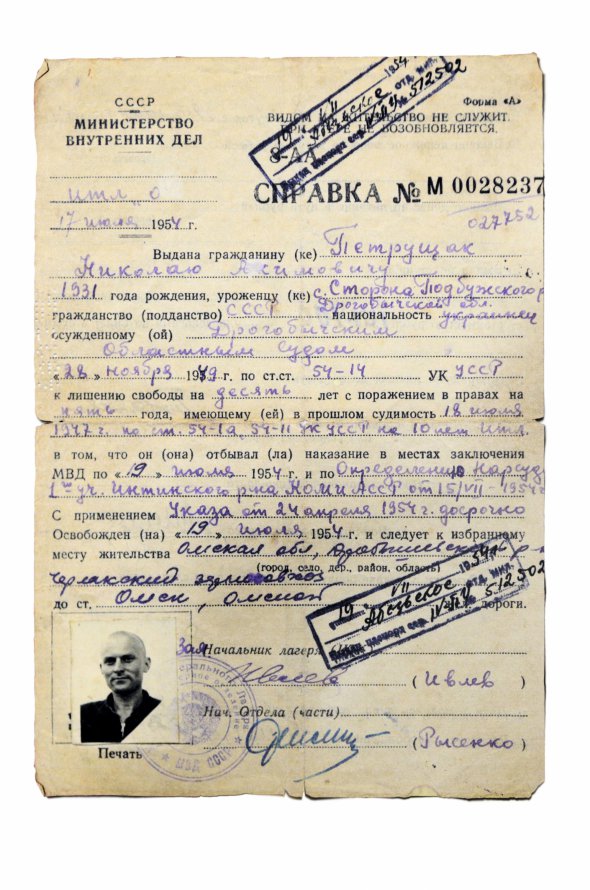 СССР
МИНИСТЕРСТВО
ВНУТРЕННИХ ДЕЛ
Форма «А»
ВИДОМ НА ЖИТЕЛЬСТВО НЕ СЛУЖИТ.
ПРИ НЕ ВОЗОБНОВЛЯЕТСЯ.
19 VII 1954
Абезьское отд. мил.
IV-ПЧ № 512502
8-АА
итл „О
СПРАВКА № М 0028237
17 июля 1954 г.
027752
Выдана гражданину (ке) Петрущак
Николаю Акимовичу
1931 года рождения, уроженцу (ке) с. Сторона Подбужского р
Дрогобычской обл.
гражданство (подданство) СССР национальность украинец
осужденному (ой) Дрогобычским
Областным Судом
« 28 » ноября 1949 г. по ст.ст. 54-14 УК УССР
к лишению свободы на десять лет с поражением в правах на
пять года, имеющему (ей) в прошлом судимость 18 июля
1947 г. по ст. 54-1а, 54-11 УК УССР на 10 лет итл.
в том, что он (она) отбывал (ла) наказание в местах заключения
МВД по « 19 » июля 1954 г. и по Определению Нарсуда
1го уч. Интинского р-на Коми АССР от 15/VII-1954 г
С применением Указа от 24 апреля 1954 г. досрочно
Освобожден (на) « 19 » июля 1954 г. и следует к избранному
месту жительства Омская обл,
(город, село, дер., район, область)
Черлакский
до ст. Омск, Омской дороги.
19 VII 1954 г.
Абезьское отд. мил.
IV-ПЧ № 512502
Зам Начальник лагеря
( Ивлев )
Нач. Отдела (части)
( Рысенко )
Печать
МВД СССР